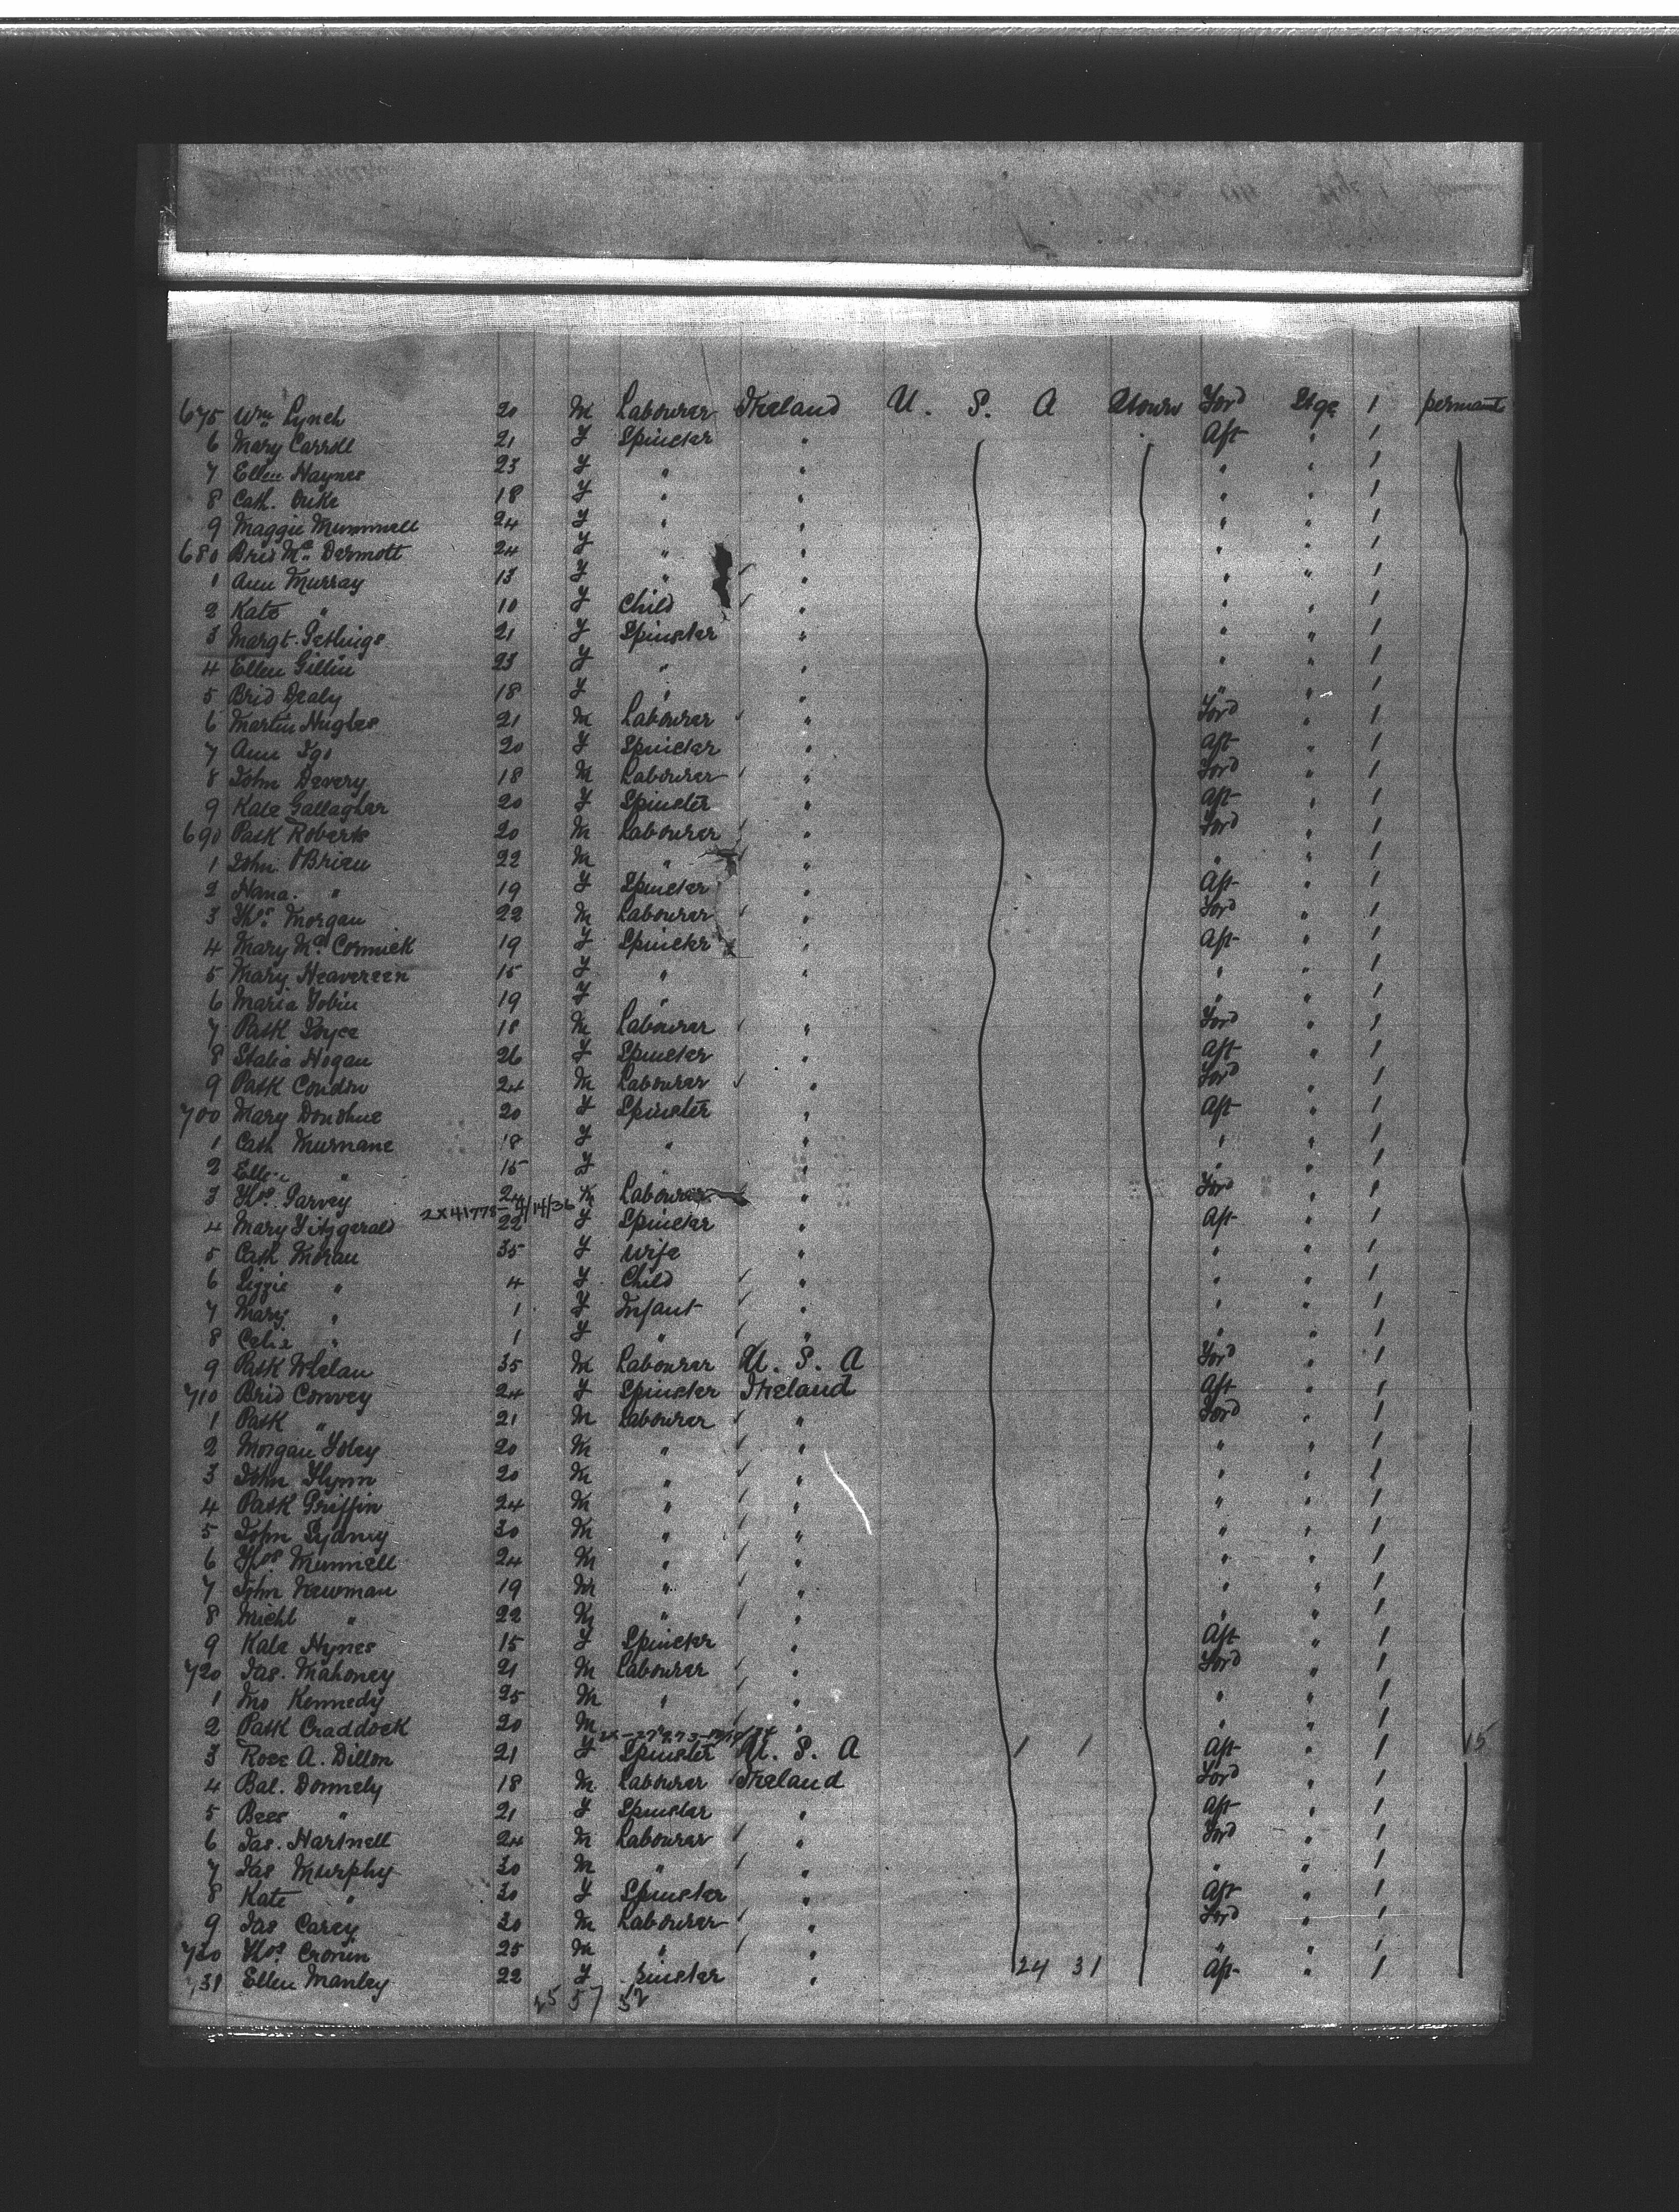 675 Wm Lynch 20 M Labourer Ireland U. S. A Ford Stge 1 permant
6 Mary Carroll 21 F Spinster " Aft " 1
7 Ellen Haynes 23 F " " " " 1
8 Cath. Duke 18 F " " " " 1
9 Maggie Mummell 24 F " " " " 1
680 Brid Mc Dermott 24 F " " " " 1
1 Ann Murray 13 F " " " " 1
2 Kate " 10 F Child " " " 1
3 Margt. 21 F Spinster " " " 1
4 Ellen Gillin 23 F " " " " 1
5 Brid Dealy 18 F " " " " 1
6 Martin Hughes 21 M Labourer " Ford " 1
7 Ann Igo 20 F Spinster " Aft " 1
8 John Devery 18 M Labourer " Ford " 1
9 Kate Gallagher 20 F Spinster " Aft " 1
690 Patk Roberts 20 M Labourer " Ford " 1
1 John OBrien 22 M " " " " 1
2 Hana. " 19 F Spinster " Aft " 1
3 Thos. Morgan 22 M Labourer " Ford " 1
4 Mary Mc Cormick 19 F Spinster " Aft " 1
5 Mary Heavereen 15 F " " " " 1
6 Maria Tobin 19 F " " " " 1
7 Patk Joyce 18 M Labourer " Ford " 1
8 Statia Hogan 26 F Spinster " Aft " 1
9 Patk Condon 24 M Labourer " Ford " 1
700 Mary Donohue 20 F Spinster " Aft " 1
1 Cath Murnane 18 F " " " " 1
2 Ellen " 15 F " " " " 1
3 Thos. Garvey 24 M Labourer " Ford " 1
2X41778-4/14/36
4 Mary Fitzgerald 22 F Spinster " Aft " 1
5 Cath Moran 35 F Wife " " " 1
6 Lizzie " 4 F Child " " " 1
7 Mary " 1 F Infant " " " 1
8 Celia " 1 F " " " " 1
9 Patk Whelan 35 M Labourer U. S. A Ford " 1
710 Brid Convey 24 F Spinster Ireland Aft " 1
1 Patk " 21 M Labourer " Ford " 1
2 Morgan Foley 20 M " " " " 1
3 John Flynn 20 M " " " " 1
4 Patk Griffin 24 M " " " " 1
5 John Sydney 30 M " " " " 1
6 Thos Munnell 24 M " " " " 1
7 John Newman 19 M " " " " 1
8 Michl " 22 M " " " " 1
9 Kate Hynes 15 F Spinster " Aft " 1
720 Jas. Mahoney 21 M Labourer " Ford " 1
1 Jno Kennedy 25 M " " " " 1
2 Patk Craddock 20 M " " " " 1
3 Rose A. Dillon 21 F Spinster U. S. A 1 1 Aft " 1 15
4 Bat. Donnely 18 M Labourer Ireland Ford " 1
5 Bess " 21 F Spinster " Aft " 1
6 Jas. Hartnett 24 M Labourer " Ford " 1
7 Jas Murphy 30 M " " " " 1
8 Kate " 30 F Spinster " Aft " 1
9 Jas Carey 30 M Labourer " Ford " 1
730 Thos Cronin 25 M " " " " 1
731 Ellen Manley 22 F Spinster " 24 31 Aft " 1
25 57 52